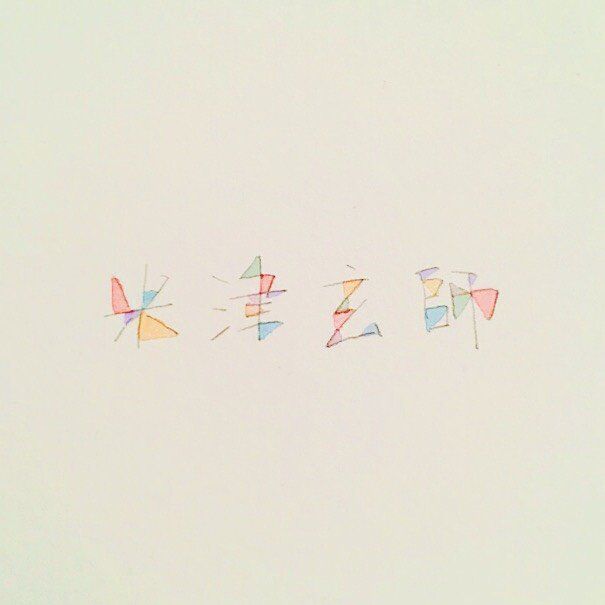 米津玄師